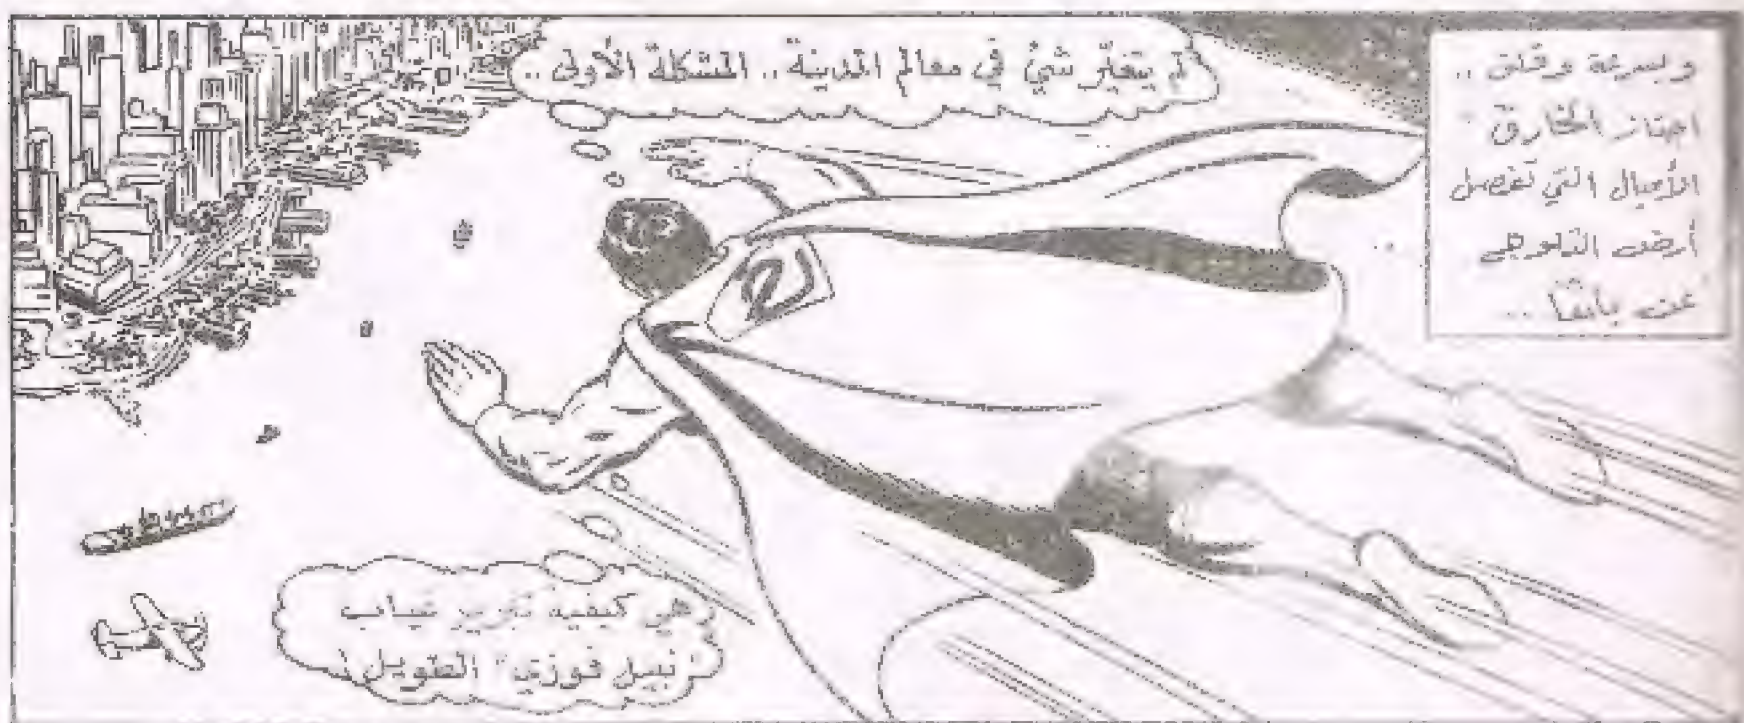 وبسرعة وقلق ..
اجتاز الخارق
الأميال التي تفصل
أرض
عن ..
لم يتغيّر شيْ في معالم المدينة .. المشكلة الأولى ..
هي كيفية تبرير غياب
نبيل فوزي" الطويل!